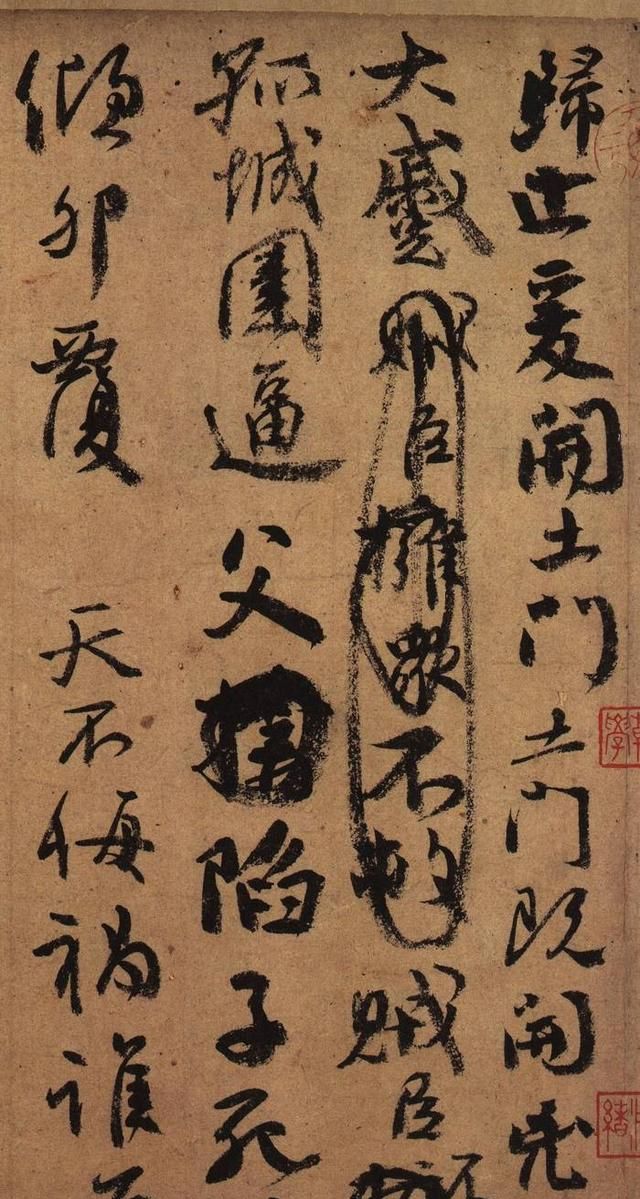 歸止爰開土門土門既開兇
大蹙賊臣擁衆不救賊臣不
孤城圍逼父陷子死
傾卵覆天不悔禍誰